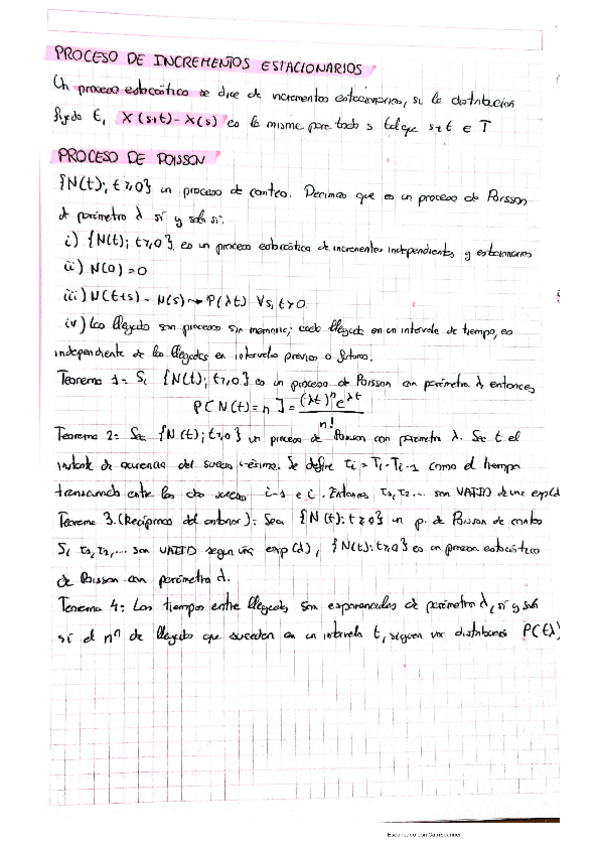 PROCESO DE INCREMENTOS ESTACIONARIOS
Un proceso estocástico se dice de incrementos estacionarios, si la distribución
fijado t, X(s+t)-X(s) es la misma para todo s tal que s+t ∈ T
PROCESO DE POISSON
{N(t); t≥0} un proceso de conteo. Decimos que es un proceso de Poisson
de parámetro λ sí y solo si:
i) {N(t); t≥0} es un proceso estocástico de incrementos independientes y estacionarios
ii) N(0)=0
iii) N(t+s) - N(s) ~> P(λt) ∀s,t>0
iv) Las llegadas son procesos sin memoria; cada llegada en un intervalo de tiempo, es
independiente de las llegadas en intervalos previos o futuros.
Teorema 1= Si {N(t); t≥0} es un proceso de Poisson con parámetro λ, entonces
P[N(t)=n] = (λt)^n e^λt / n!
Teorema 2: Sea {N(t); t≥0} un proceso de Poisson con parámetro λ. Sea t el
instante de ocurrencia del suceso i-ésimo. Se define τi = Ti - Ti-1 como el tiempo
transcurrido entre los dos sucesos i-1 e i. Entonces τ1, τ2... son VAIID de una exp(λ
Teorema 3. (Recíproco del anterior): Sea {N(t): t≥0} un p. de Poisson de conteo
Si τ1, τ2,... son VAIID según una exp(λ), {N(t): t≥0} es un proceso estocástico
de Poisson con parámetro λ.
Teorema 4: Los tiempos entre llegadas son exponenciales de parámetro λ, sí y solo
si el nº de llegadas que suceden en un intervalo t, siguen una distribución P(tλ)
Escaneado con CamScanner